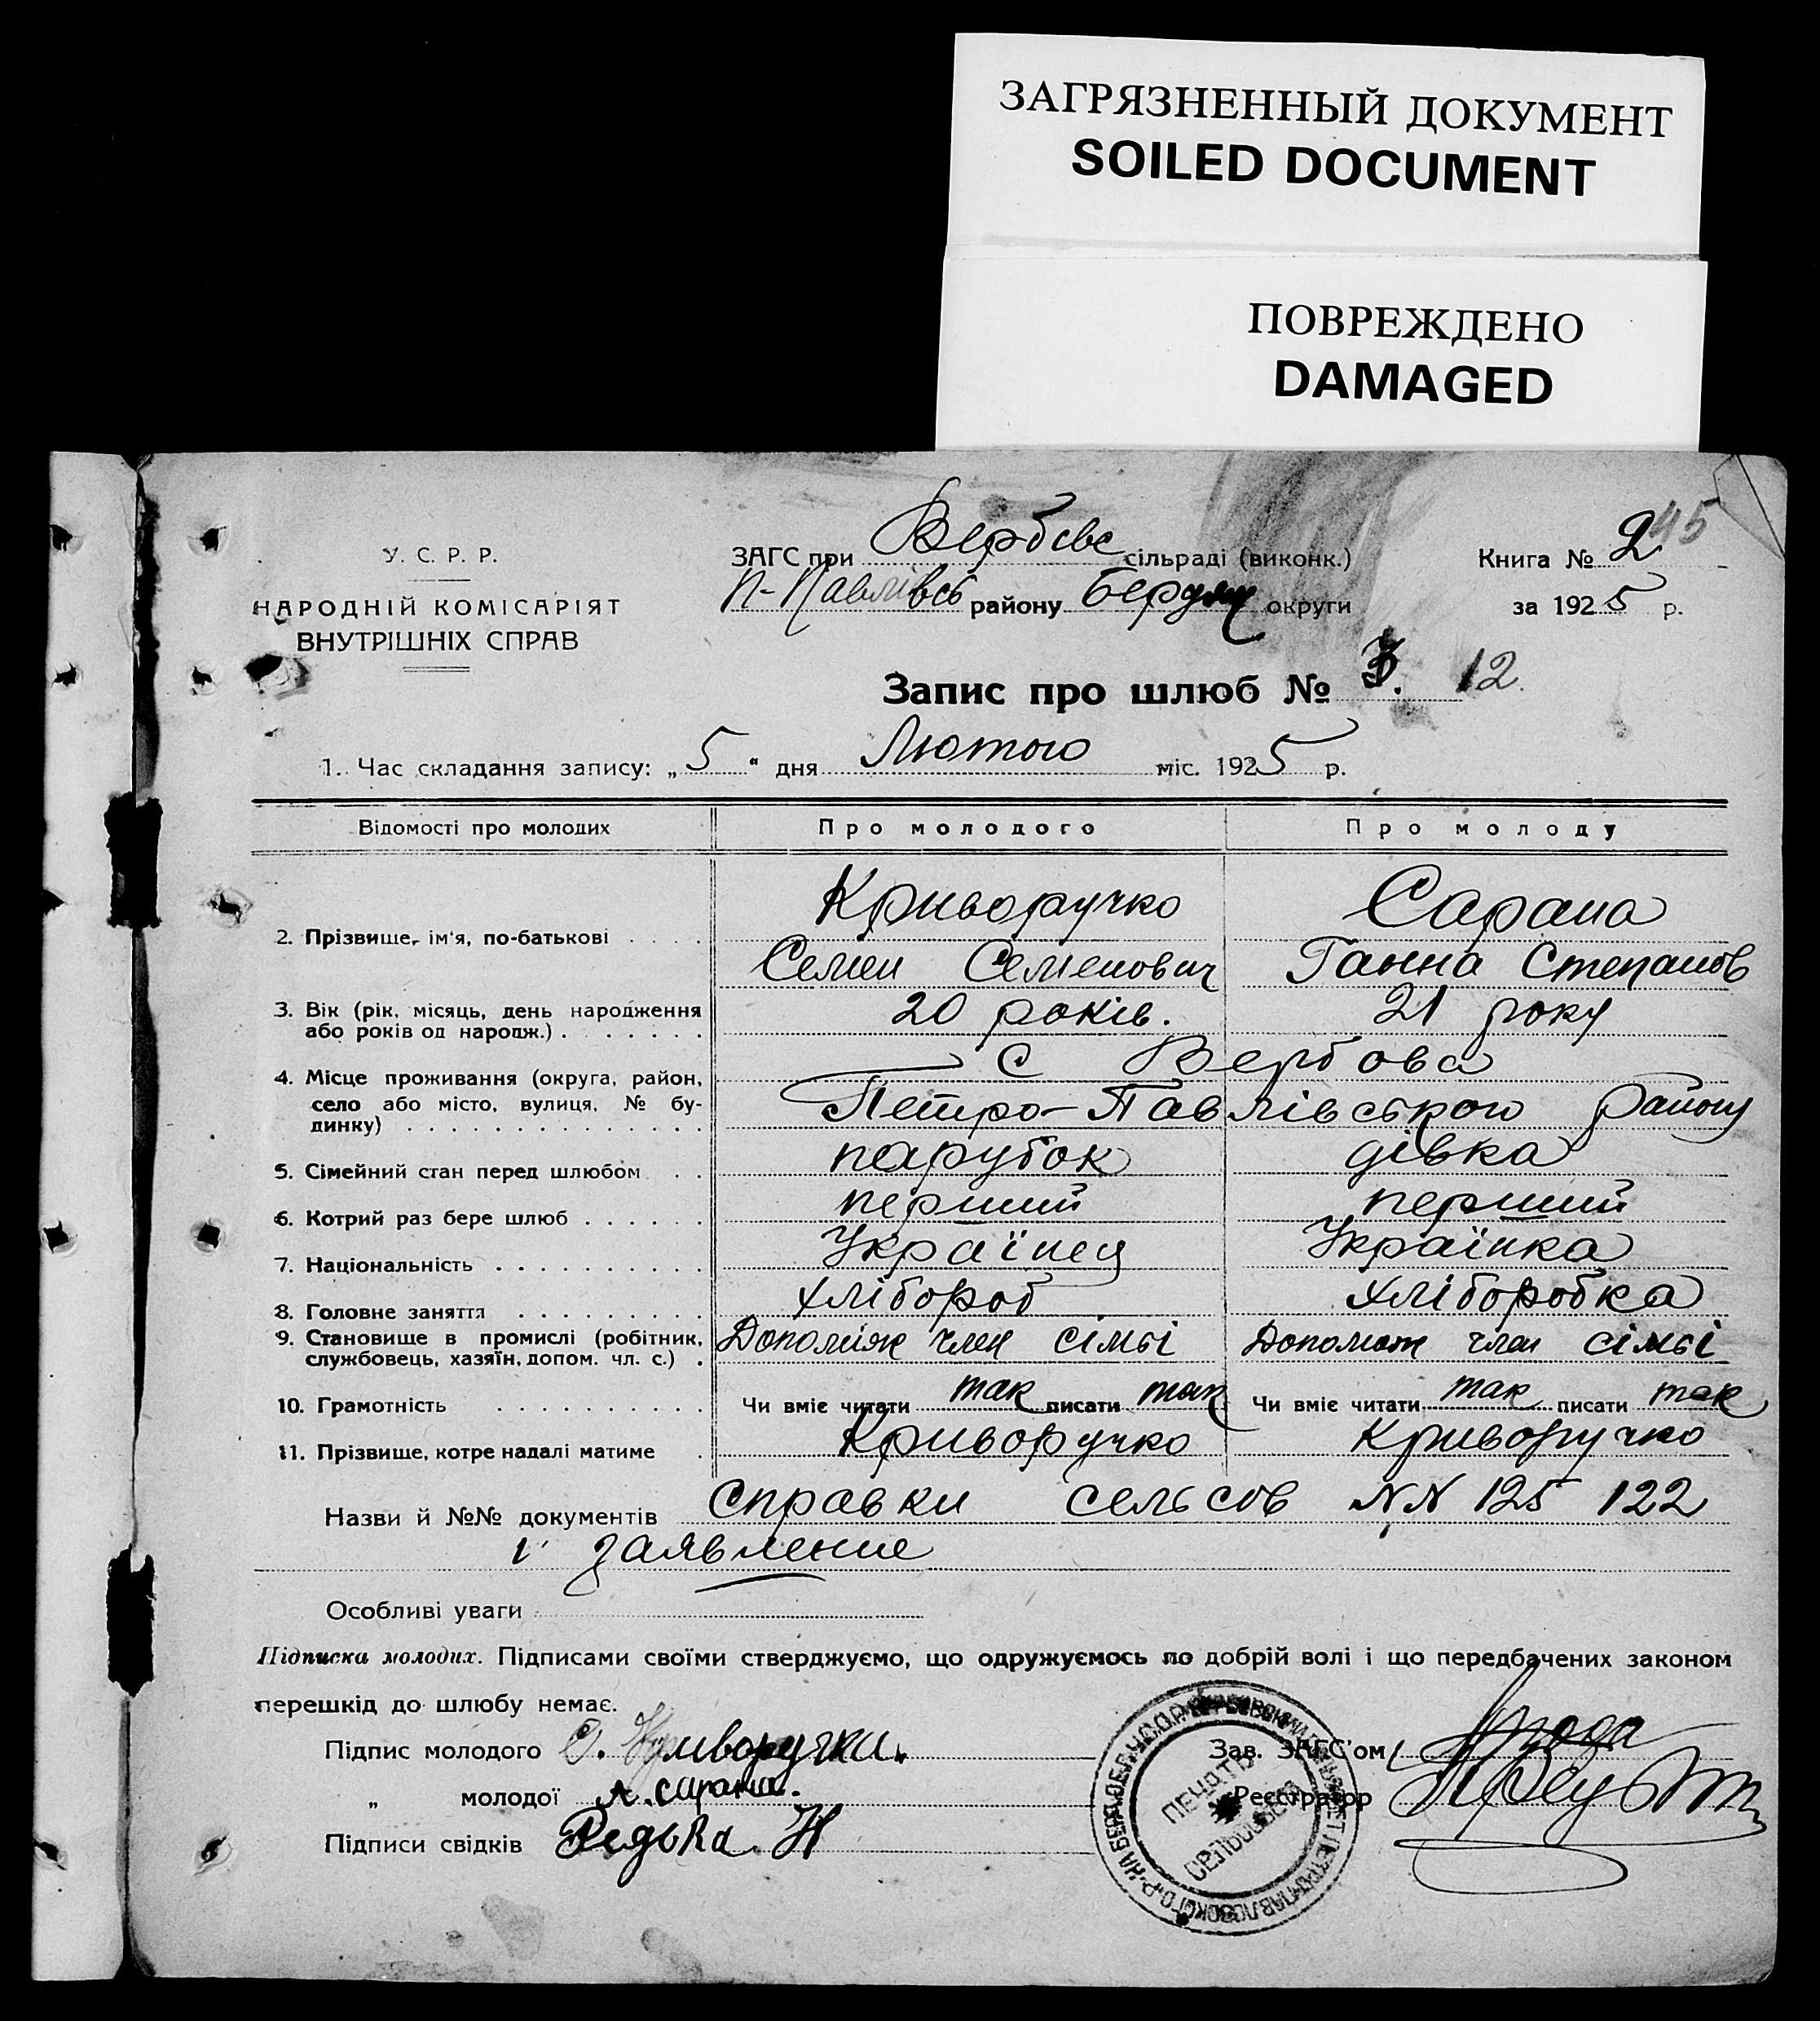 ЗАГРЯЗНЕННЫЙ ДОКУМЕНТ
SOILED DOCUMENT
ПОВРЕЖДЕНО
DAMAGED
У. С. Р. Р.
НАРОДНІЙ КОМІСАРІЯТ
ВНУТРІШНІХ СПРАВ
ЗАГС при Вербівс сільраді (виконк.)
П-Павлівсь району Бердян округи
Книга № 2 45
за 1925 р.
Запис про шлюб № 12.
1. Час складання запису: „5" дня Лютого міс. 1925 р.
Відомості про молодих Про молодого Про молоду
Криворучко Сарана
2. Прізвище, ім'я, по-батькові . . . .
Семен Семенович Ганна Степанов
3. Вік (рік, місяць, день народження 20 років. 21 року
або років од нарож.) . . . . . . .
С Вербова
4. Місце проживання (округа, район,
село або місто, вулиця, № бу- Петро-Павлівського району
динку) . . . . . . . . . . . . . .
5. Сімейний стан перед шлюбом . . парубок дівка
6. Котрий раз бере шлюб . . . . . . перший перший
7. Національність . . . . . . . . . . Українец Українка
8. Головне заняття . . . . . . . . . хлібороб хліборобка
9. Становище в промислі (робітник, Допоміж член сімьі Допомож член сімьі
службовець, хазяїн, допом. чл. с.) .
10. Грамотність . . . . . . . . . . Чи вміє читати так писати так Чи вміє читати так писати так
11. Прізвище, котре надалі матиме . Криворучко Криворучко
Назви й №№ документів справки сельсов NN 125 122
і заявление
Особливі уваги
Підписка молодих. Підписами своїми стверджуємо, що одружуємось по добрій волі і що передбачених законом
перешкід до шлюбу немає.
Підпис молодого С. Криворучки.
Зав. ЗАГС'ом
„ молодої А. Сарана.
Реєстратор
Підписи свідків Редька Н
ПЕЧАТЬ